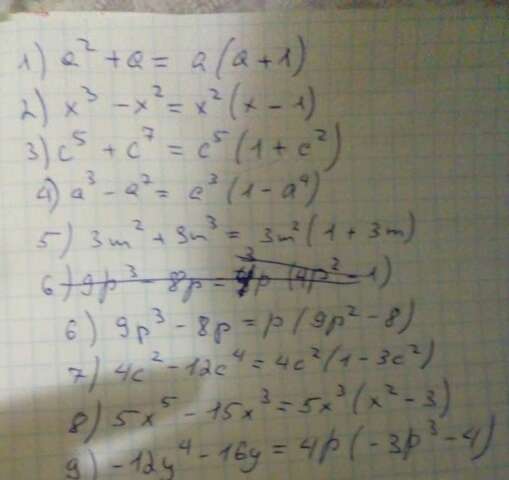 1) a² + a = a (a + 1)
2) x³ - x² = x² (x - 1)
3) c⁵ + c⁷ = c⁵ (1 + c²)
4) a³ - a⁷ = a³ (1 - a⁴)
5) 3m² + 9m³ = 3m² (1 + 3m)
6) 9p³ - 8p = p (4p² - 1)
6) 9p³ - 8p = p (9p² - 8)
7) 4c² - 12c⁴ = 4c² (1 - 3c²)
8) 5x⁵ - 15x³ = 5x³ (x² - 3)
9) -12y⁴ - 16y = 4p (-3p³ - 4)